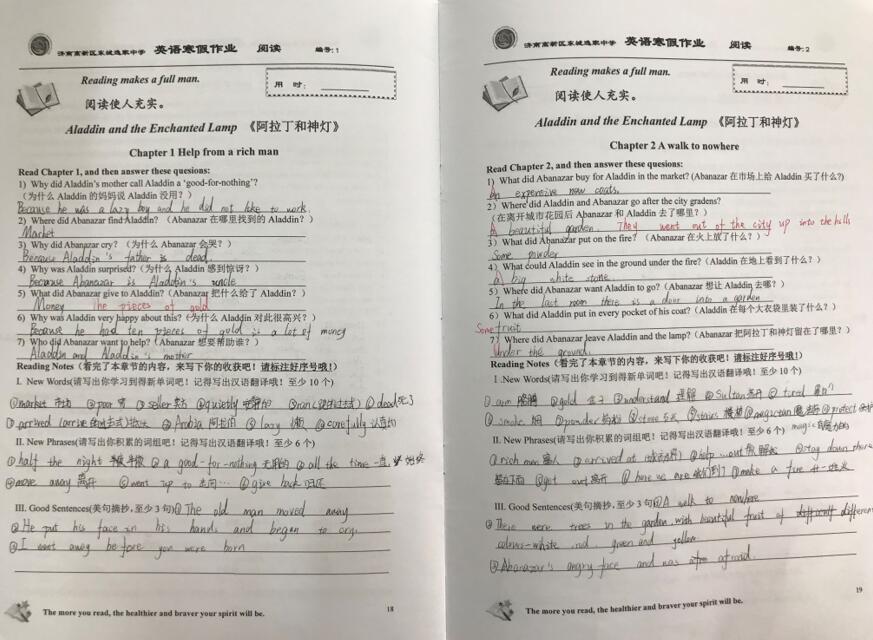 济南高新区东城逸家中学 英语寒假作业 阅读 编号:1
Reading makes a full man.
用 时:
阅读使人充实。
Aladdin and the Enchanted Lamp 《阿拉丁和神灯》
Chapter 1 Help from a rich man
Read Chapter 1, and then answer these quesions:
1) Why did Aladdin's mother call Aladdin a 'good-for-nothing'?
(为什么 Aladdin 的妈妈说 Aladdin 没用?)
Because he was a lazy boy and he did not like to work.
2) Where did Abanazar find Aladdin? (Abanazar 在哪里找到的 Aladdin?)
Market
3) Why did Abanazar cry? (为什么 Abanazar 会哭?)
Because Aladdin's father is dead.
4) Why was Aladdin surprised?(为什么 Aladdin 感到惊讶?)
Because Abanazar is Aladdin's uncle
5) What did Abanazar give to Aladdin? (Abanazar 把什么给了 Aladdin?)
Money The pieces of gold
6) Why was Aladdin very happy about this?(为什么 Aladdin 对此很高兴?)
Because he had ten pieces of gold is a lot of money
7) Who did Abanazar want to help? (Abanazar 想要帮助谁?)
Aladdin and Aladdin's mother
Reading Notes (看完了本章节的内容,来写下你的收获吧! 请标注好序号哦!)
I. New Words(请写出你学习到得新单词吧!记得写出汉语翻译哦!至少 10 个)
①market 市场 ②poor 穷 ③seller ④quietly ⑤ran ⑥dead 死了
⑦arrived (arrive ⑧Arabia 阿拉伯 ⑨lazy 懒 ⑩carefully
II. New Phrases(请写出你积累的词组吧!记得写出汉语翻译哦!至少 6 个)
①half the night ②a good-for-nothing ③all the time
④move away 离开 ⑤went up to ⑥give back 归还
III. Good Sentences(美句摘抄,至少 3 句)①The old man moved away
②He put his face in his hands and began to
③I went away before you were born
The more you read, the healthier and braver your spirit will be.
18
济南高新区东城逸家中学 英语寒假作业 阅读 编号:2
Reading makes a full man.
用 时:
阅读使人充实。
Aladdin and the Enchanted Lamp 《阿拉丁和神灯》
Chapter 2 A walk to nowhere
Read Chapter 2, and then answer these quesions:
1) What did Abanazar buy for Aladdin in the market? (Abanazar 在市场上给 Aladdin 买了什么?)
An expensive new coats.
2) Where did Aladdin and Abanazar go after the city gradens?
(在离开城市花园后 Abanazar 和 Aladdin 去了哪里?)
A beautiful garden They went out of the city up into the hills
3) What did Abanazar put on the fire? (Abanazar 在火上放了什么?)
Some powder
4) What could Aladdin see in the ground under the fire? (Aladdin 在地上看到了什么?)
A big white stone
5) Where did Abanazar want Aladdin to go? (Abanazar 想让 Aladdin 去哪?)
In the last room there is a door into a garden
6) What did Aladdin put in every pocket of his coat? (Aladdin 在每个大衣袋里装了什么?)
Some fruit
7) Where did Abanazar leave Aladdin and the lamp? (Abanazar 把阿拉丁和神灯留在了哪里?)
Under the ground.
Reading Notes (看完了本章节的内容,来写下你的收获吧! 请标注好序号哦!)
I .New Words(请写出你学习到得新单词吧!记得写出汉语翻译哦!至少 10 个)
①arm ②gold ③understand 理解 ④Sultan ⑤tired
⑥smoke 烟 ⑦powder ⑧stone ⑨stairs 楼梯 ⑩magician protect
magic
II. New Phrases(请写出你积累的词组吧!记得写出汉语翻译哦!至少 6 个)
①rich man 富人 ②arrived at ③help...out ④stay down there
⑤get out 离开 ⑥here we are ⑦make a fire
III. Good Sentences(美句摘抄,至少 3 句)①A walk to nowhere
②There were trees in the garden, with beautiful fruit of different
colours-white, red, green and yellow
③Abanazar's angry face and was afraid.
The more you read, the healthier and braver your spirit will be.
19